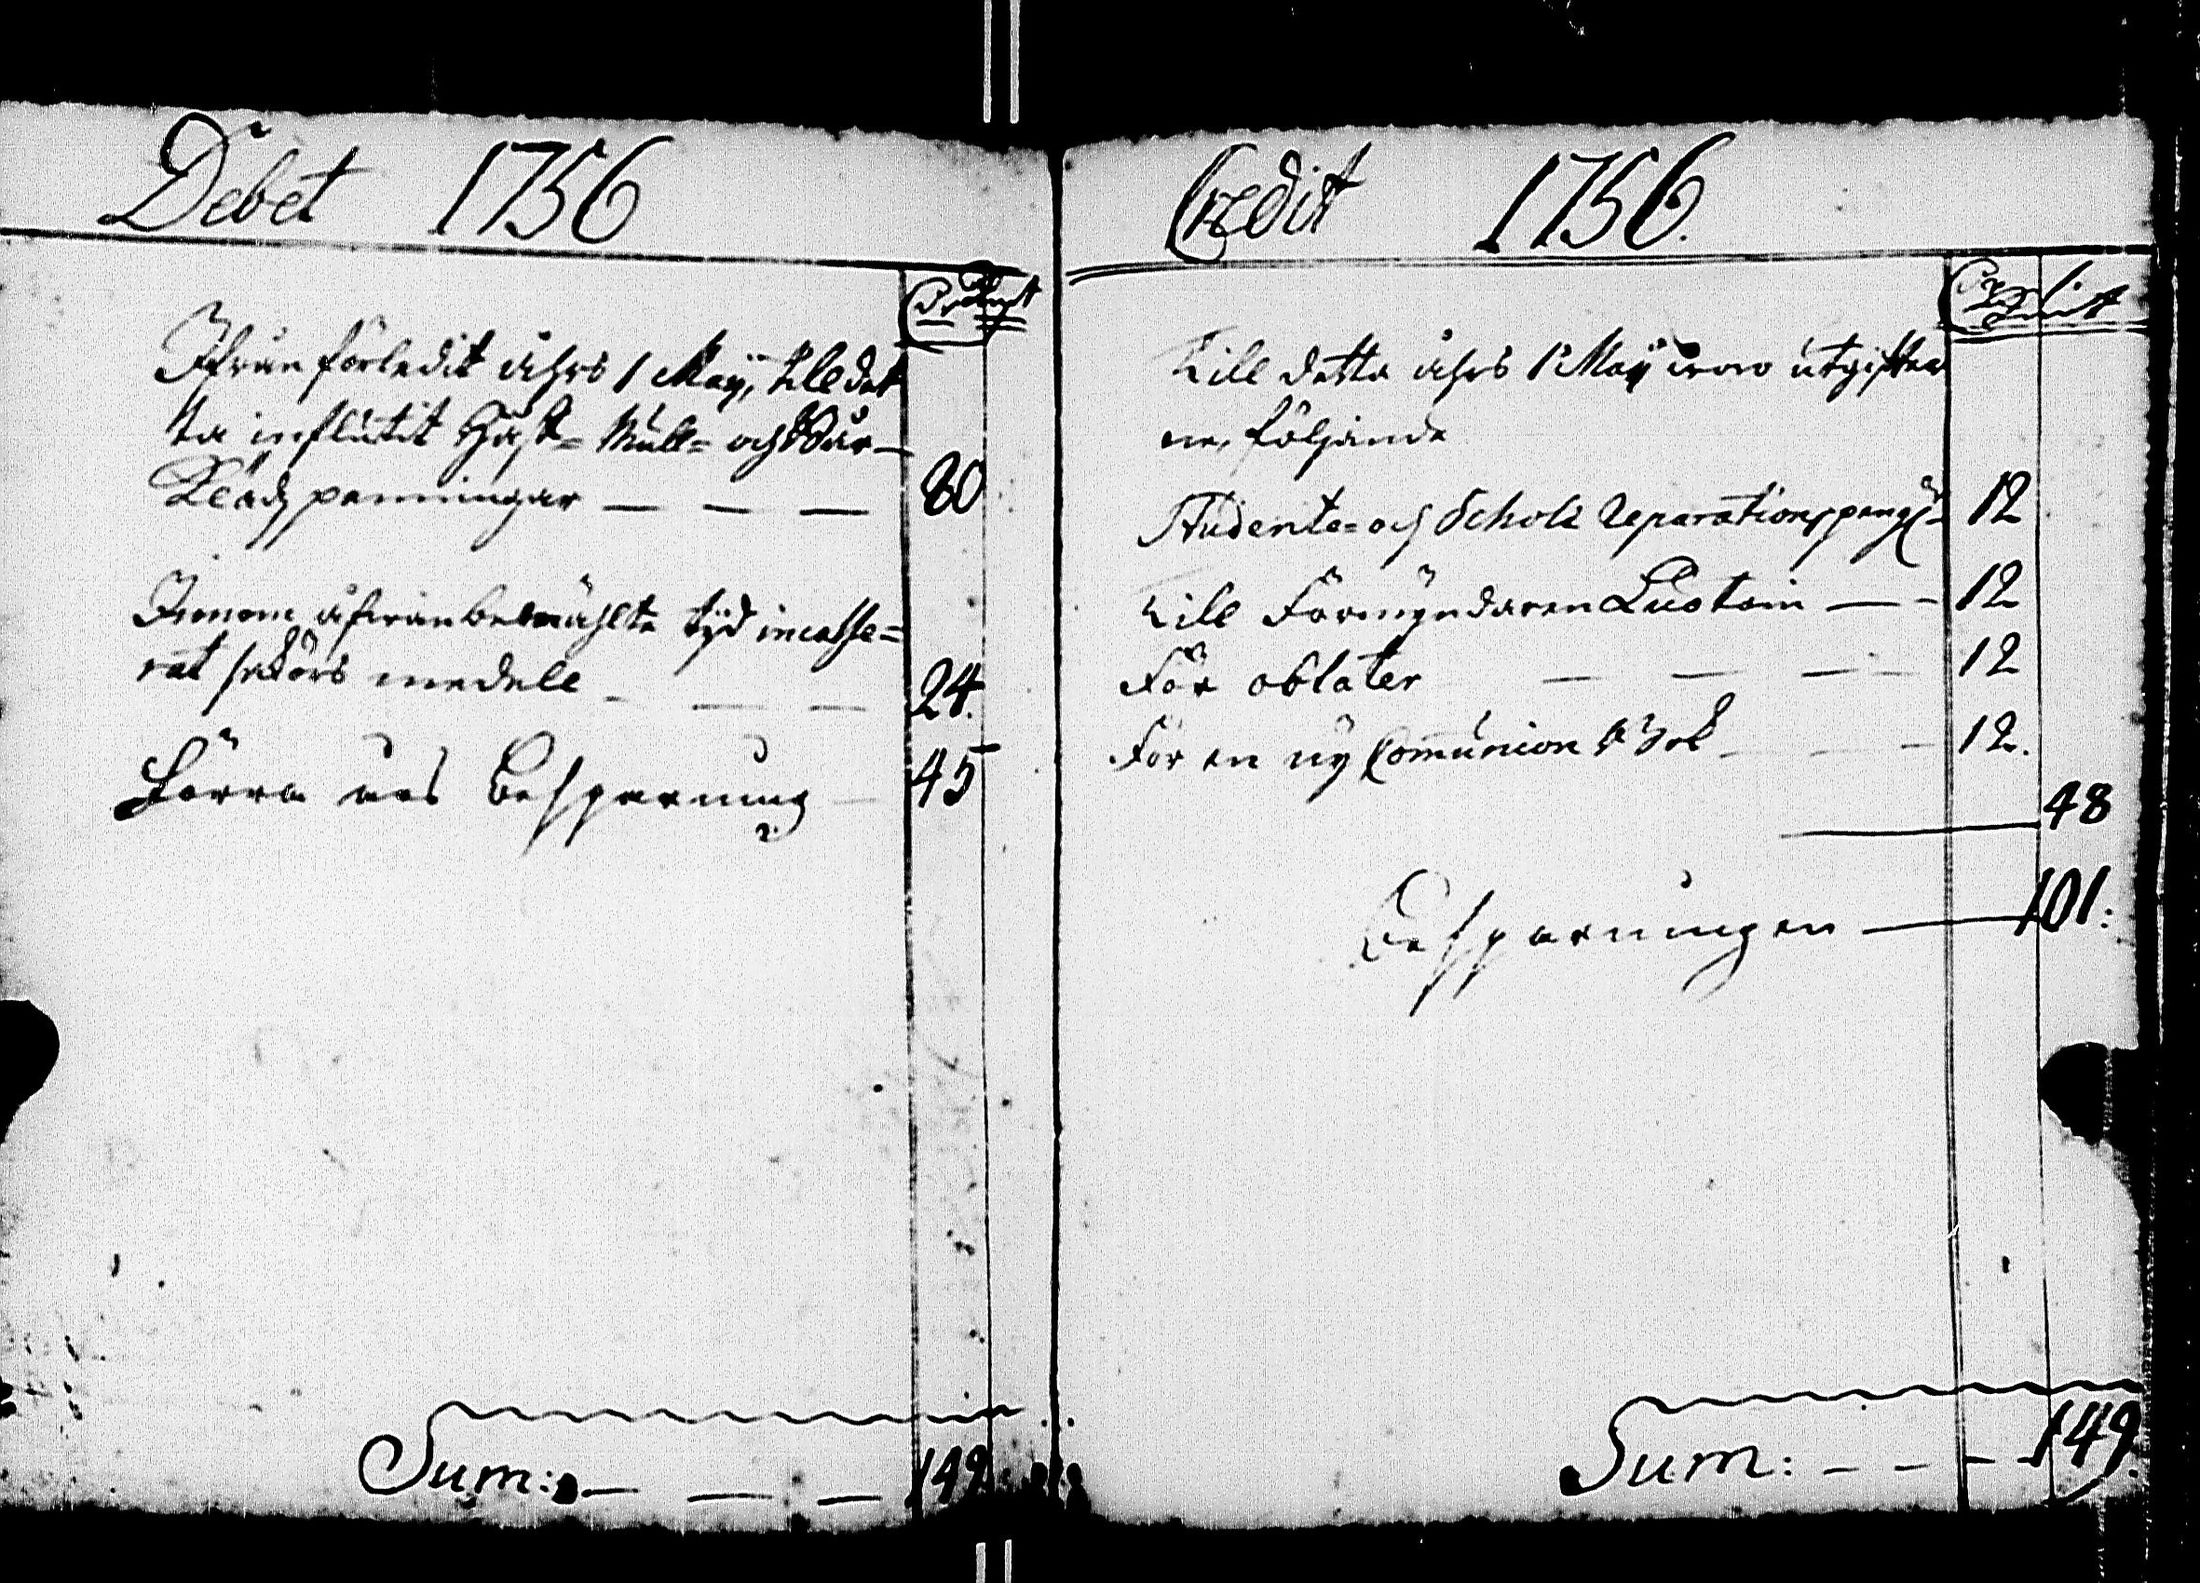 Debet 1756
Ifrån förledit åhrs 1 Maÿ, till det
ta influtit Håf-, Mull- och Bår-
klädz penningar — — — 80
Innom ofvanbemählte tÿd incasse=
rat medell — — — 24.
Förra åhrs Besparning — 45
Sum: — — — 149
Credit 1756.
Till detta åhrs 1 Maÿ äro utgifter
ne, följande
Studente- och Schole Reparations peng: 12
Till Förmÿndaren — — 12
För oblater — — — — 12
För en nÿ Comunion — — — 12.
48
Besparningen — 101:
Sum: — — — 149.